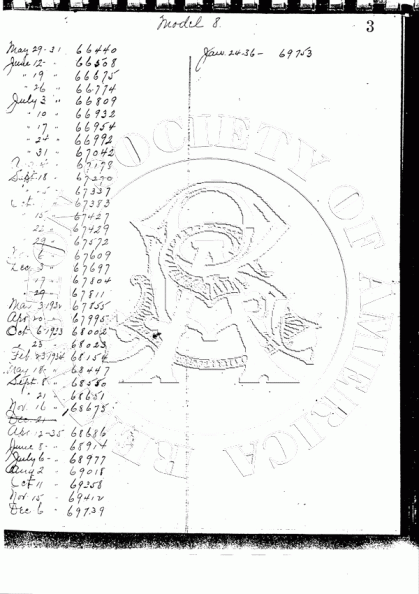 Model 8.
3
May 29-31 66440
June 12- " 66568
" 19 " 66675
" 26 " 66774
July 3 " 66809
" 10 " 66932
" 17 " 66954
" 24 " 66992
" 31 - 67042
67178
Sept 18 " 67270
67337
Oct 67383
" 15 67427
" 22 " 67429
" 29 " 67572
6 " 67609
Dec 3 " 67697
" 17 " 67804
" 29 " 67811
Mar 3 1932 67855
Apr 20 " 67995
Oct 6-1933 68002
" 23 - 68023
Feb 23 1934 68154
May 18 " 68447
Sept 8 " 68550
" 21 " 68651
Nov 16 " 68675
Dec 21
Apr 12-35 68686
June 8- " 68914
July 6- " 68977
Aug 2 " 69018
Oct 11 " 69258
Nov 15 " 69412
Dec 6 - 69739
Jan. 24-36- 69753
SOCIETY OF AMERICA